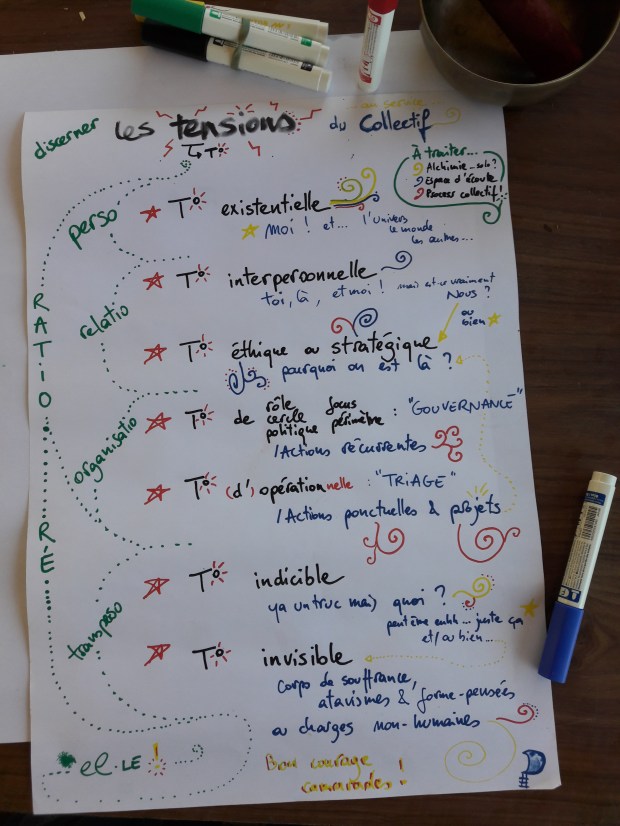 discerner les tensions du Collectif
au service
T°
À traiter...
Alchimie solo ?
Espace d'écoute
Process collectif !
perso
T° existentielle
Moi ! et... l'univers
le monde
les autres...
relatio
T° interpersonnelle
toi, là, et moi ! mais est-ce vraiment
Nous ?
ou
bien
T° éthique ou stratégique
pourquoi on est là ?
organisatio
T° de rôle focus
cercle périmètre : "GOUVERNANCE"
politique
/Actions récurrentes
T° (d') opérationnelle : "TRIAGE"
/Actions ponctuelles & projets
transperso
T° indicible
ya un truc mais quoi ?
peut être euhh... juste ça
et/ou bien...
T° invisible
corps de souffrance,
atavismes & forme-pensées
ou charges non-humaines
RATIO
RE
el·LE !
Bon courage
camarades !